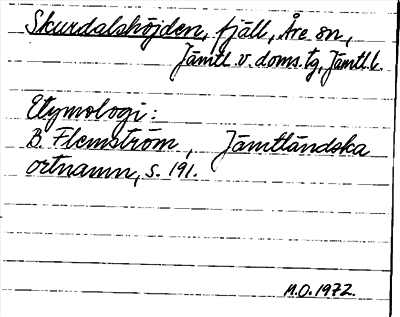 Skurdalshöjden, fjäll, Åre sn,
Jämtl. v. doms. tg, Jämtl. l.
Etymologi:
B. Flemström, Jämtländska
ortnamn, s. 191.
M.O. 1972.